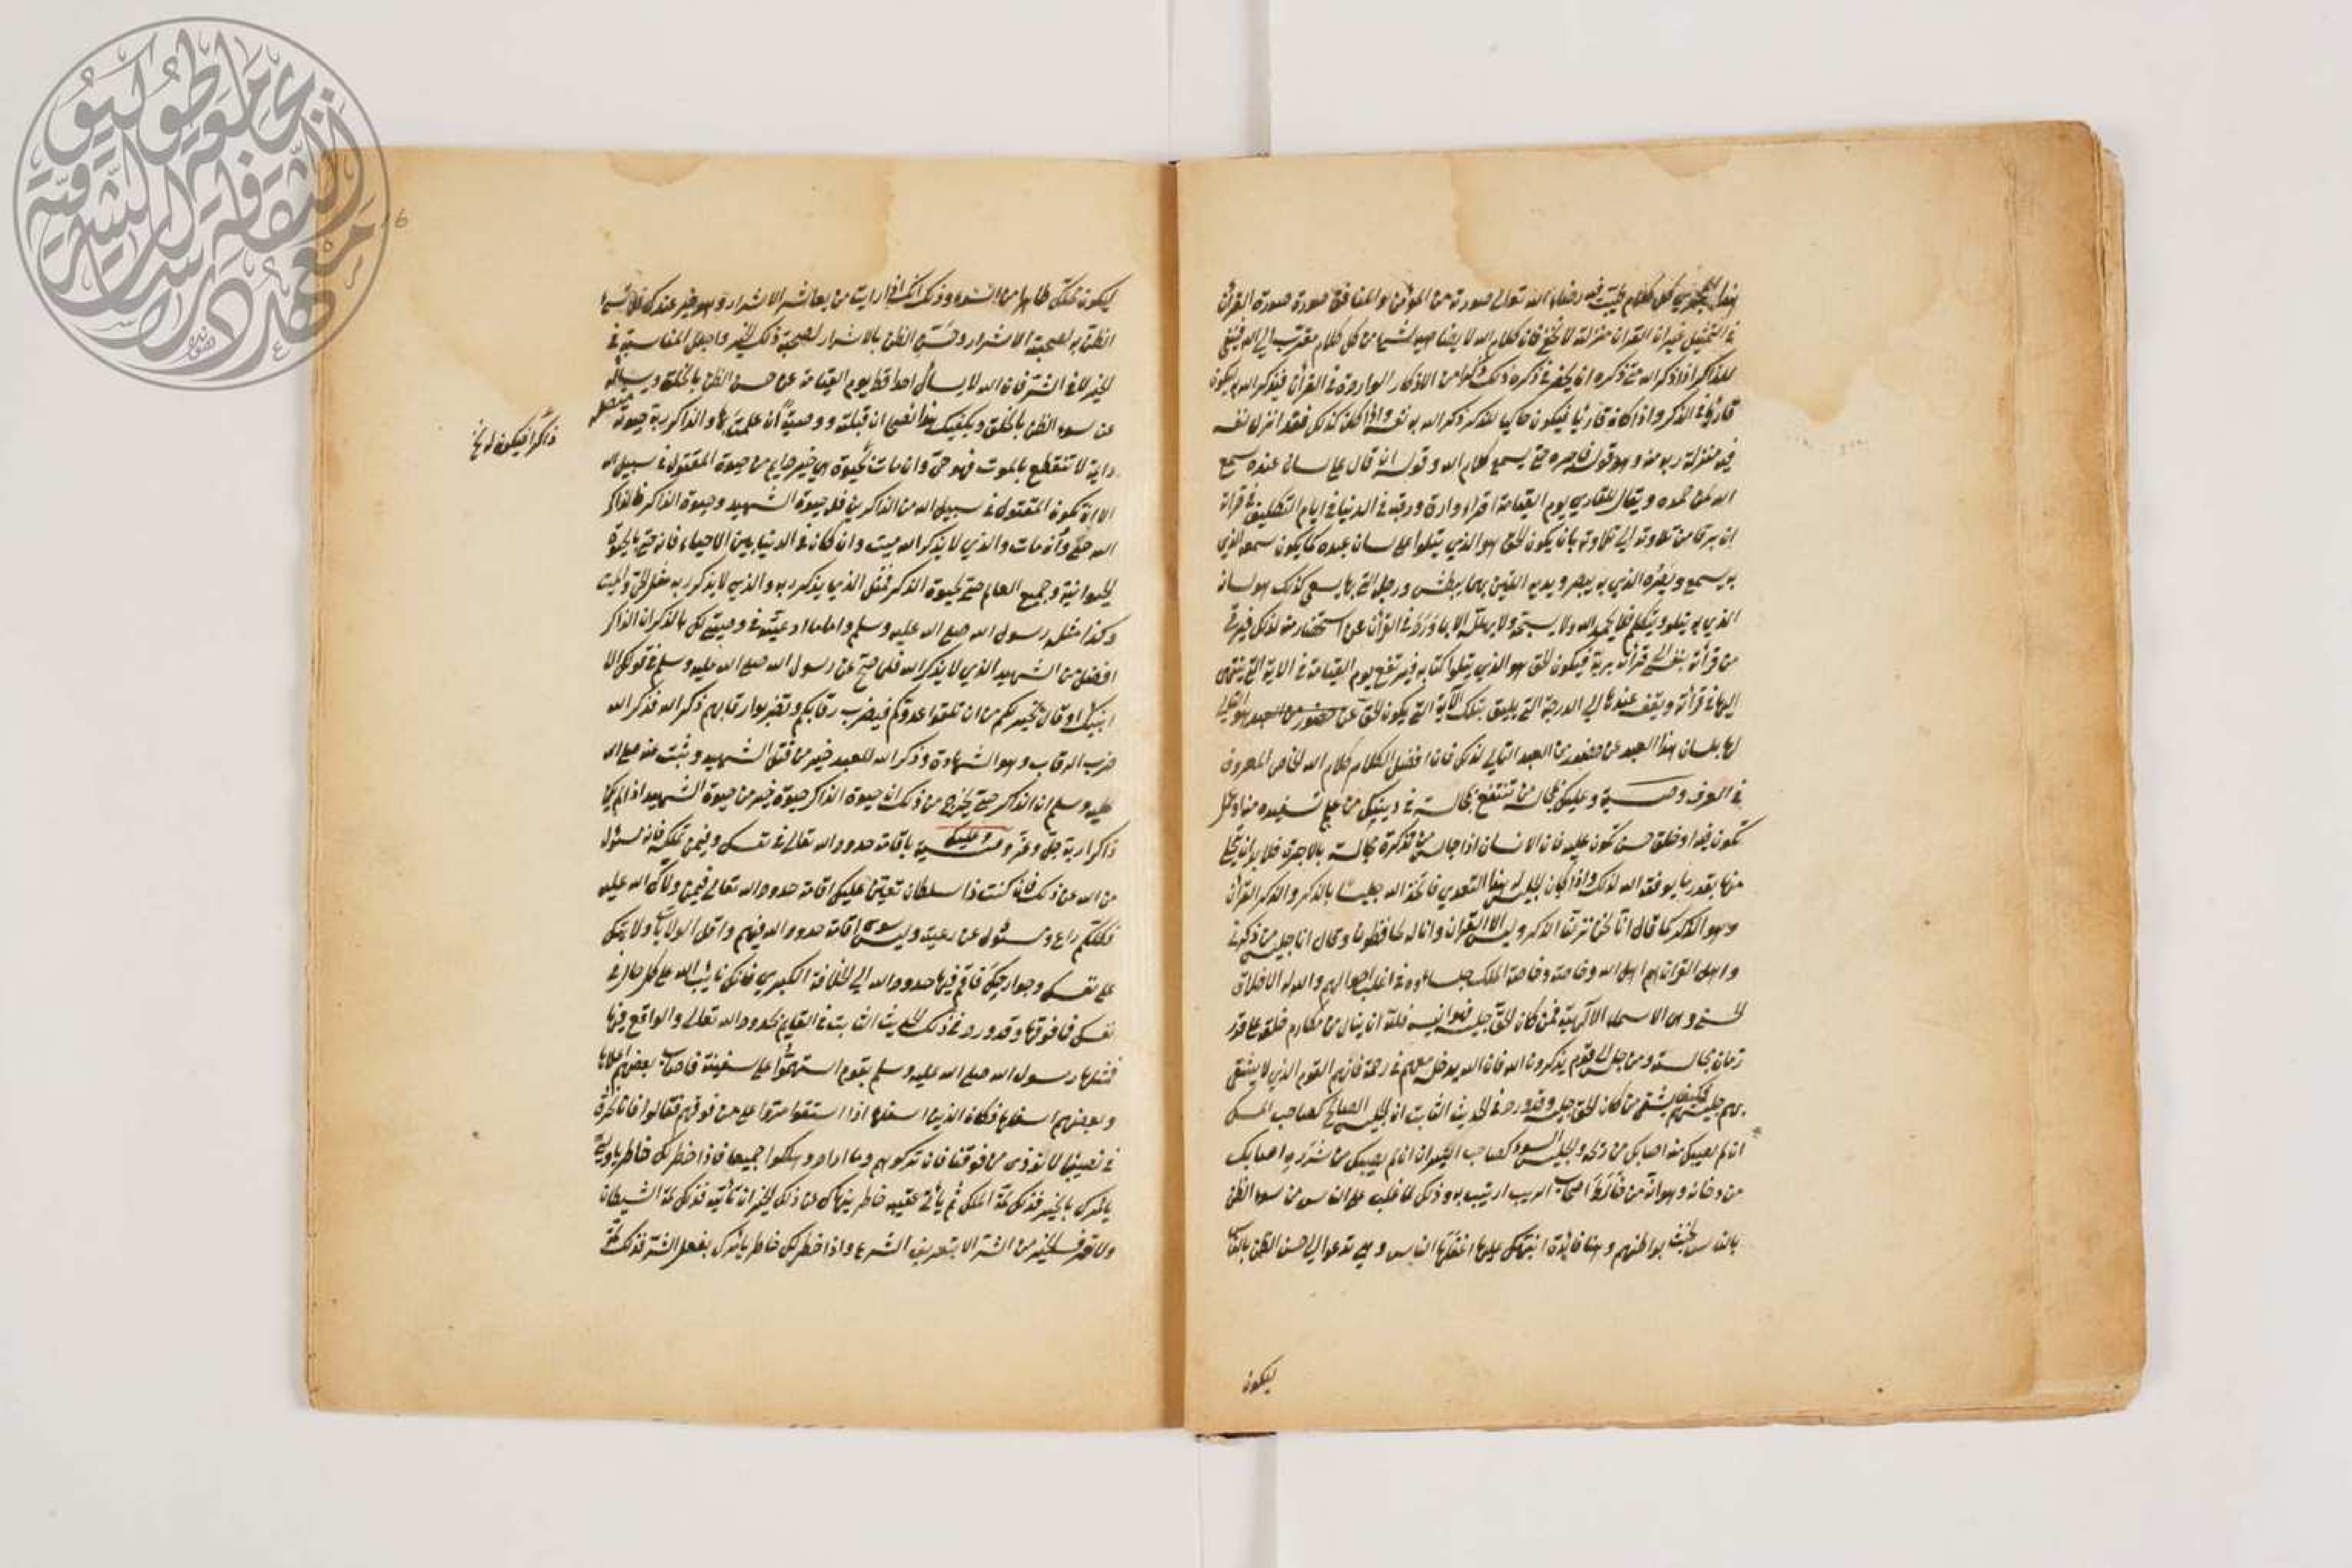 هذا المجرى كل كلام طيب فيه رضاء الله تعالى صورته من المؤمن والمنافق صورة صورة القرآن
في التمثيل غير ان القرآن منزلته لا تخفى فان كلام الله لا يضاهيه شيء من كل كلام مقرب الى الله فينبغي
للذاكر اذا ذكر الله متى ذكره ان يحضر في ذكره ذلك ذكرا من الاذكار الواردة في القرآن فيذكر الله به ليكون
قارئا في الذكر واذا كان قارئا فيكون حاكيا للذكر ذكر الله به نفسه واذا كان كذلك فقد انزل نفسه
فيه منزلة ربه منه وهو قوله فاجره حتى يسمع كلام الله وقوله ان الله قال على لسان عبده سمع
الله لمن حمده ويقال للقاري يوم القيامة اقرأ وارق ورقيه في الدنيا في ايام التكليف في قراته
ان يرقا من تلاوته الى تلاوته بان يكون الحق هو الذي يتلوا على لسان عبده كما يكون سمعه الذي
به يسمع وبصره الذي به يبصر ويديه التي بها يبطش ورجله التي بها يسعى كذلك هو لسانه
الذي به يتلو ويتكلم فلا يحمد الله ولا يسبحه ولا يهلله الا بما ورد في القرآن عن استحضار منه لذلك فيرقى
من قرأته بنفسه الى قرأته بربه فيكون الحق هو الذي يتلوا كتابه فيرتفع يوم القيامة في الاية التي ينتهى
اليها في قرأته ويقف عندها الى الدرجة التي يليق بتلك الآية التي يكون الحق عن حضور من العبد هو التالى
لها بلسان هذا العبد عن حضور من العبد التالي لذلك فان افضل الكلام كلام الله الخاص المعروف
في العرف وصية وعليك بمجالسة من تنتفع بمجالسته في دينك من علم تستفيده منه او عمل
يكون فيه او خلق حسن يكون عليه فان الانسان اذا جالس من تذكره مجالسته بالاخرة فلا بد ان يتحلى
منها بقدر ما يوفقه الله لذلك واذا كان الجليس له هذا التعدي فاتخذ الله جليسا بالذكر والذكر القرآن
وهو الذكر كما قال انا نحن نزلنا الذكر وليس الا القران وانا له لحافظون وقال انا جليس من ذكرني
واهل القران هم اهل الله وخاصته وخاصة الملك جلساؤه في اغلب احوالهم والله له الاخلاق
الحسنى وهي الاسماء الآلهية فمن كان الحق جليسه فهو انيسه فلا بد ان ينال من مكارم خلقه على قدر
زمان مجالسته ومن جلس الى قوم يذكرون الله فان الله يدخله معهم في رحمته فانهم القوم الذي لا يشقى
بهم جليسهم فكيف يشقى من كان الحق جليسه وقد ورد في الحديث الثابت ان الجليس الصالح كصاحب المسك
ان لم يصيبك منه اصابك من ريحه والجليس السوء كصاحب الكير ان لم يصيبك من شرره اصابك
من دخانه وهو ان من خالط اصحاب الريب ارتيب به وذلك لما غلب على الناس من سوء الظن
بالناس لخبث بواطنهم وهنا فايدة انبهك عليها اغفلها الناس وهي تدعوا الى حسن الظن بالناس
ليكون
ليكون محلك طاهرا من السوء وذلك انك اذا رايت من يعاشر الاشرار وهو خير عندك فلا تسيء
الظن به لصحبته الاشرار وحسن الظن بالاشرار لصحبته ذلك الخير واجعل المناسبة في
الخير لا في الشر فان الله لا يسأل احدا قط يوم القيامة عن حسن الظن بالخلق ويسأله
عن سوء الظن بالخلق ويكفيك هذا نصحا ان قبلته ووصية ان علمت بها والذاكر ربه حيوته متصلة
دايمة لا تنقطع بالموت فهو حي وان مات بحيوة هي خير واتم من حيوة المقتول في سبيل الله
ذاكرا فيكون له
الا ان يكون المقتول في سبيل الله من الذاكرين فله حيوة الشهيد وحيوة الذاكر فالذاكر
الله حي وان مات والذي لا يذكر الله ميت وان كان في الدنيا بين الاحياء فانه حي بالحيوة
الحيوانية وجميع العالم حي بحيوة الذكر فمثل الذي يذكر ربه والذي لا يذكر ربه مثل الحي والميت
وكذا مثله رسول الله صلى الله عليه وسلم واما ما ادعيته في وصيتي لك بالذكر ان الذاكر
افضل من الشهيد الذي لا يذكر الله فلما صح عن رسول الله صلى الله عليه وسلم في قوله الا
انبئكم او قال بخير لكم من ان تلقوا عدوكم فيضرب رقابكم وتضربوا رقابهم ذكر الله فذكر الله
ضرب الرقاب وهو الشهادة وذكر الله للعبد خير من قتل الشهيد وثبت عنه صلى الله
عليه وسلم ان الذاكر حي يخرج من ذلك ان حيوة الذاكر حيوة خير من حيوة الشهيد اذا لم يكن
ذاكرا ربه جل وعز وصية وعليك باقامة حدود الله تعالى في نفسك وفيمن تملكه فانك مسئول
من الله عن ذلك فان كنت ذا سلطان تعين عليك اقامة حدود الله تعالى فيمن ولاك الله عليه
فكلكم راع ومسئول عن رعيته وليس سوى اقامة حدود الله فيهم واقل الولايات ولايتك
على نفسك وجوارحك فاقم فيها حدود الله الى الخلافة الكبرى فانك نايب الله على كل حال في
نفسك فما فوقها وقد ورد في ذلك الحديث الثابت في القايم بحدود الله تعالى والواقع فيها
فمثلها رسول الله صلى الله عليه وسلم بقوم استهموا على سفينة فاصاب بعضهم اعلاها
وبعضهم اسفلها فكان الذين اسفلها اذا استقوا مروا على من فوقهم فقالوا فانا نخرق
في نصيبنا لا نوذى من فوقنا فان تركوهم وما ارادوا هلكوا جميعا فاذا خطر لك خاطر
يامرك بالخير فذلك لمة الملك ثم ياتي عقيبه خاطر ينهاك عن ذلك الخير ان تأتيه فذلك لمة الشيطان
ولا تعرف الخير من الشر الا بتعريف الشرع واذا خطر لك خاطر يامرك بفعل الشر فذلك لمة